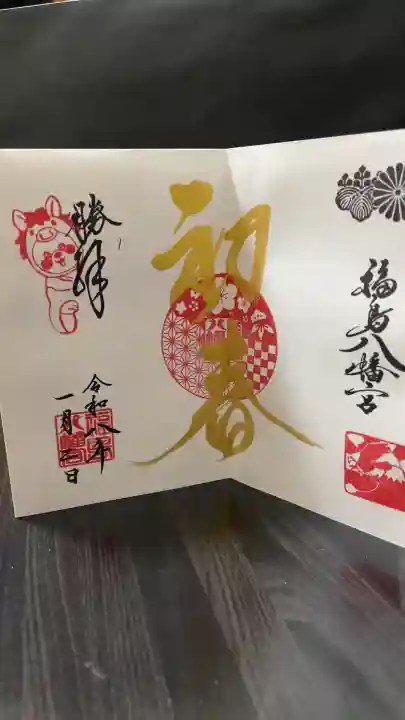 福島八幡宮
初春
勝拝
令和八年
一月吉日